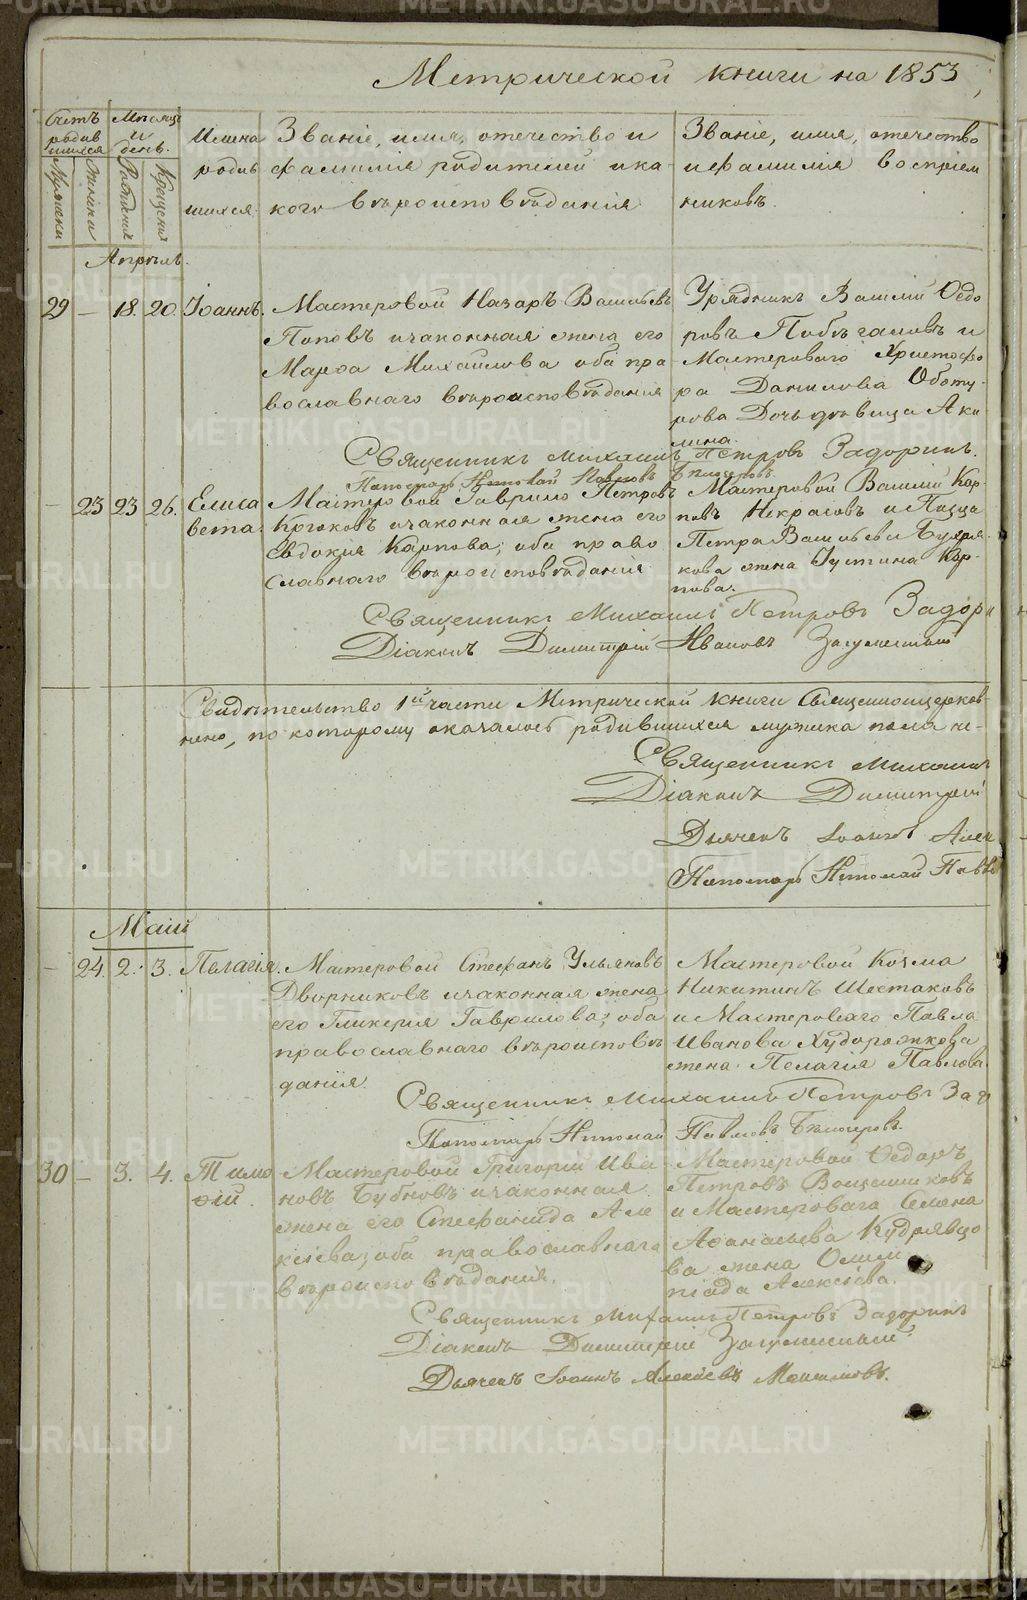 Метрической книги на 1853
Счетъ родившихся
Мѣсяцъ и день.
Мужески
Женски
Рожденія
Крещенія
Имена родившихся.
Званіе, имя, отечество и
фамилія родителей и ка-
кого вѣроисповѣданія
Званіе, имя, отечество
и фамилія воспріем
никовъ.
Апрѣль.
29 — 18. 20. Іоаннъ.
Мастеровой Назаръ Васильевъ
Поповъ и законная жена его
Марѳа Михайлова оба пра
вославнаго вѣроисповѣданія
Урядникъ Василій Ѳедо
ровъ и
Мастероваго Христофо
ра Данилова Оботу-
рова Дочь дѣвица Аки
лина.
Священникъ Михаилъ Петровъ Задоринъ.
Пономарь Николай Павловъ
— 23 23 26. Елиса
вета.
Мастеровой Гаврило Петровъ
Крюковъ и законная жена его
Евдокія Карпова; оба право
славнаго вѣроисповѣданія
Мастеровой Василій Кар-
повъ Некрасовъ и
Петра Васильева
кова жена Іустина Кар-
пова.
Священникъ Михаилъ Петровъ Задори
Діаконъ Димитрій Ивановъ
Свидѣтельство 1й части Метрической книги Священноцерков-
но, по которому оказалось родившихся мужска пола
Священникъ Михаилъ
Діаконъ Димитрій
Дьячекъ Іоаннъ Алек
Пономарь Николай Павло
Маій
— 24. 2. 3. Пелагія.
Мастеровой Стефанъ Ульяновъ
Дворниковъ и законная жена
его Гликерія Гаврилова; оба
православнаго вѣроисповѣ
данія.
Мастеровой Козма
Никитинъ Шестаковъ
и Мастероваго Павла
Иванова Худорожкова
жена Пелагія Павлова.
Священникъ Михаилъ Петровъ Зад
Пономарь Николай Павловъ
30 — 3. 4. Тимо
ѳій.
Мастеровой Григорій Ива
новъ Бубновъ и законная
жена его Стефанида Але
ксіева; оба православнаго
вѣроисповѣданія.
Мастеровой Ѳедоръ
Петровъ
и Мастероваго Семена
Аѳанасьева Кудрявцо
ва жена Олим
піада Алексіева.
Священникъ Михаилъ Петровъ Задоринъ
Діаконъ Димитрій
Дьячекъ Іоаннъ Алексіевъ
METRIKI.GASO-URAL.RU